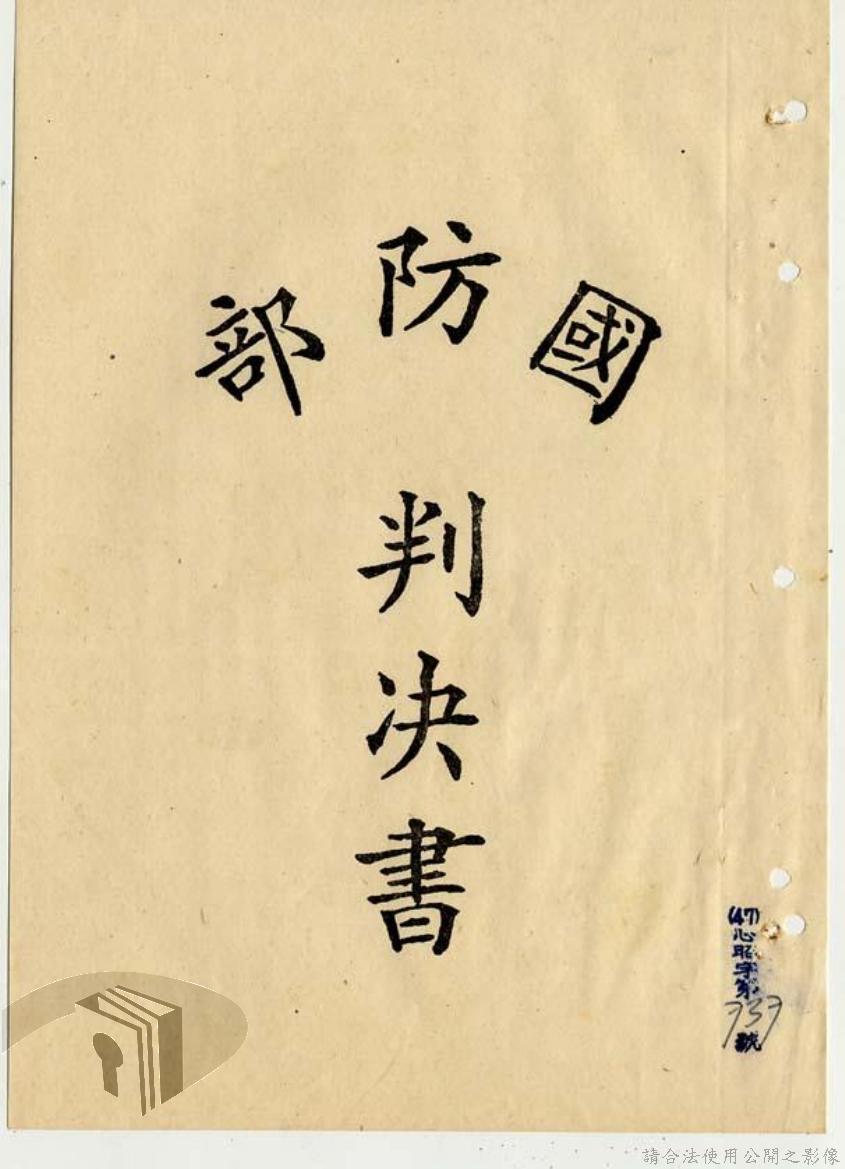 國防部
判决書
(47)心昭字第737號
請合法使用公開之影像